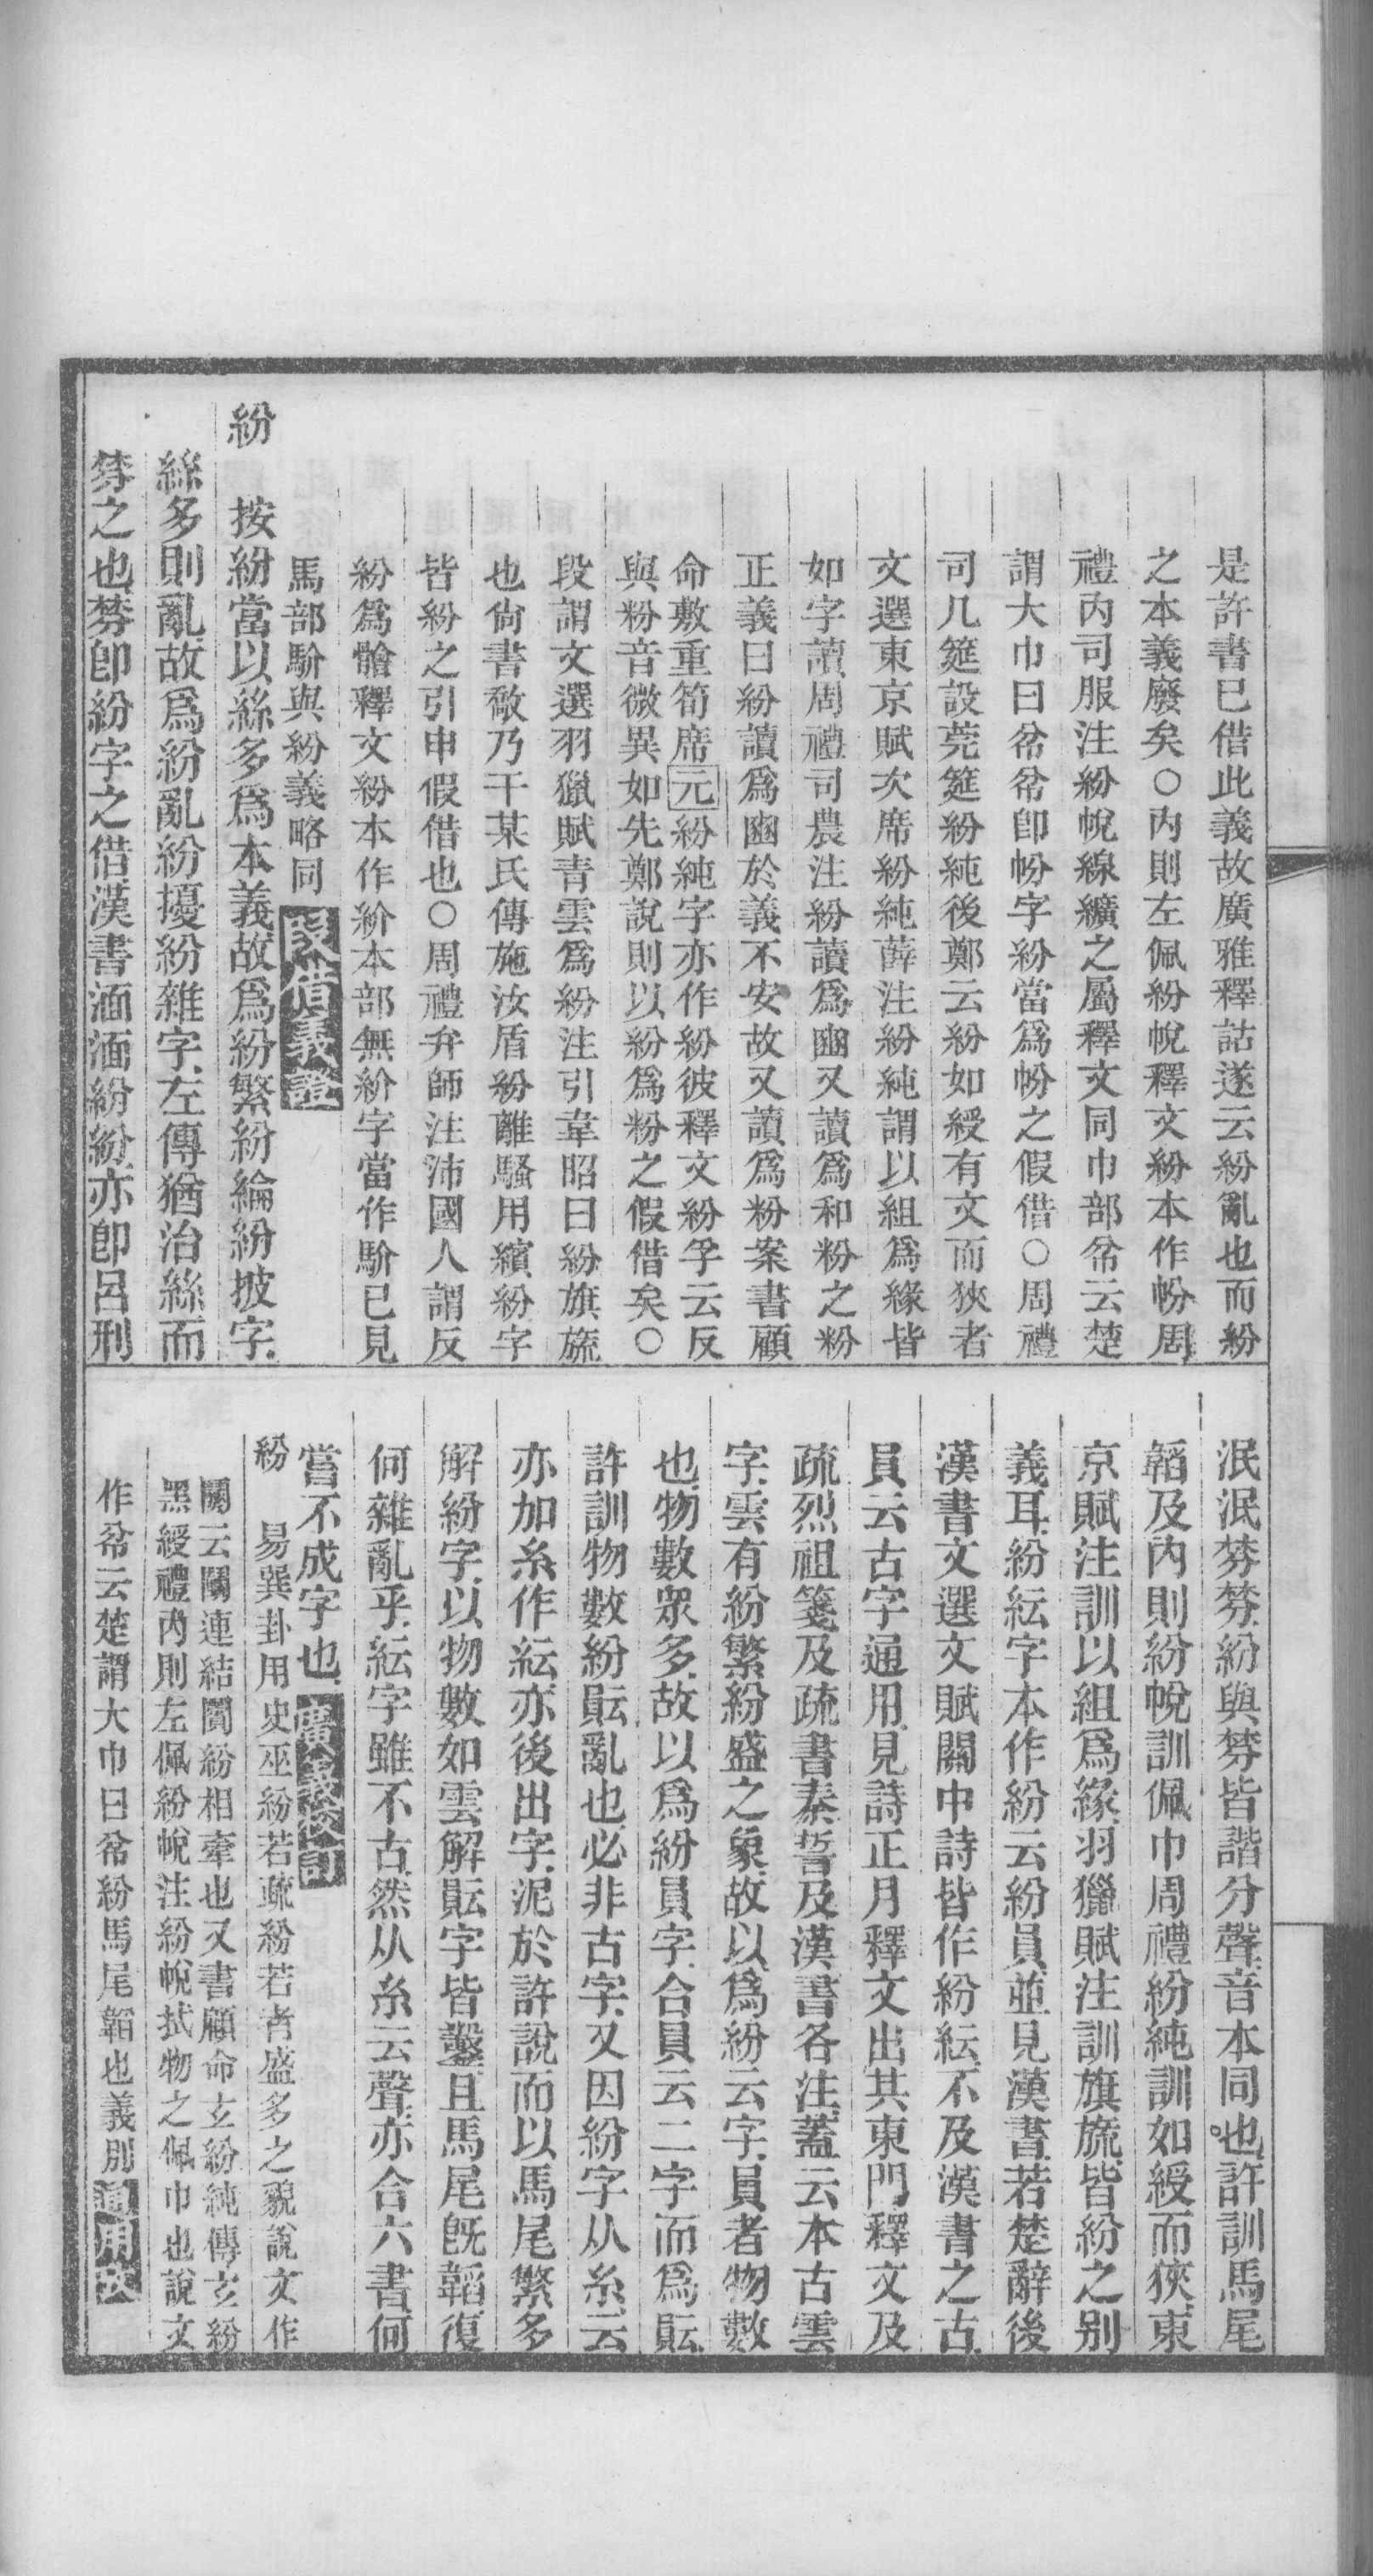 是許書已借此義故廣雅釋詁遂云紛亂也而紛
之本義廢矣○內則左佩紛帨釋文紛本作帉周
禮內司服注紛帨線纊之屬釋文同巾部帉云楚
謂大巾曰帉帉卽帉字紛當爲帉之假借○周禮
司几筵設莞筵紛純後鄭云紛如綬有文而狹者
文選東京賦次席紛純薛注紛純謂以組爲緣皆
如字讀周禮司農注紛讀爲豳又讀爲和粉之粉
正義曰紛讀爲豳於義不安故又讀爲粉案書顧
命敷重筍席元紛純字亦作紛彼釋文紛孚云反
與粉音微異如先鄭說則以紛爲粉之假借矣○
段謂文選羽獵賦青雲爲紛注引韋昭曰紛旗旒
也尙書敿乃干某氏傳施汝盾紛離騷用繽紛字
皆紛之引申假借也○周禮弁師注沛國人謂反
紛爲䯤釋文紛本作紒本部無紒字當作䯰已見
馬部馻與紛義略同段借義證
紛　按紛當以絲多爲本義故爲紛繁紛綸紛披字
絲多則亂故爲紛亂紛擾紛雜字左傳猶治絲而
棼之也棼卽紛字之借漢書湎湎紛紛亦卽呂刑
泯泯棼棼紛與棼皆諧分聲音本同也許訓馬尾
韜及內則紛帨訓佩巾周禮紛純訓如綬而狹東
京賦注訓以組爲緣羽獵賦注訓旗旒皆紛之别
義耳紛紜字本作紛云紛員並見漢書若楚辭後
漢書文選文賦關中詩皆作紛紜不及漢書之古
員云古字通用見詩正月釋文出其東門釋文及
疏烈祖箋及疏書秦誓及漢書各注蓋云本古雲
字雲有紛繁紛盛之象故以爲紛云字員者物數
也物數眾多故以爲紛員字合員云二字而爲䫟
許訓物數紛䫟亂也必非古字又因紛字从糸云
亦加糸作紜亦後出字泥於許說而以馬尾繁多
解紛字以物數如雲解䫟字皆鑿且馬尾旣韜復
何雜亂乎紜字雖不古然从糸云聲亦合六書何
嘗不成字也廣義校訂
紛　易巽卦用史巫紛若疏紛若者盛多之貌說文作
闠云鬭連結闠紛相牽也又書顧命玄紛純傳玄紛
黑綬禮內則左佩紛帨注紛帨拭物之佩巾也說文
作帉云楚謂大巾曰帉紛馬尾韜也義別通用攷